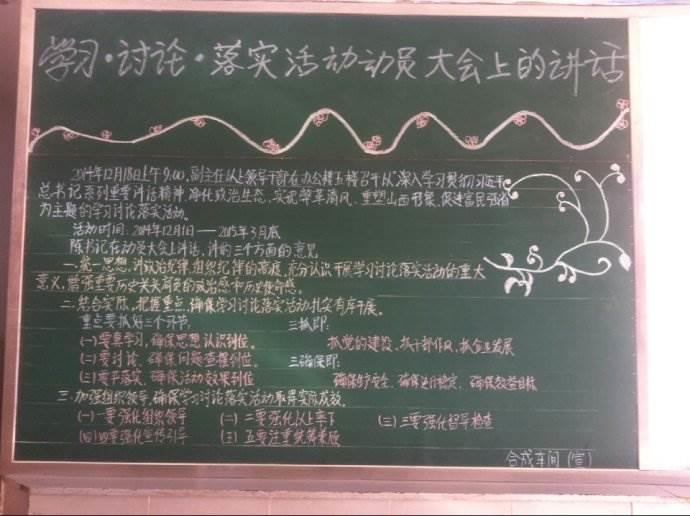 学习·讨论·落实活动动员大会上的讲话
2014年12月18日上午9:00,副主任以上领导干部在办公楼五楼召开以"深入学习贯彻习近平
总书记系列重要讲话精神,净化政治生态、实现弊革风清、重塑山西形象、促进富民强省"
为主题的学习讨论落实活动。
活动时间:2014年12月1日——2015年3月底
陈书记在动员大会上讲话,讲的三个方面的意见
一.统一思想,讲政治纪律,组织纪律的高度,充分认识开展学习讨论落实活动的重大
意义,增强重要历史关头肩负的政治感和历史使命感。
二.结合实际,把握重点,确保学习讨论落实活动扎实有序开展。
重点要抓好三个环节: 三抓即:
(一)要真学习,确保思想认识到位。 抓党的建设、抓干部作风、抓企业发展
(二)要讨论、确保问题查摆到位。 三确保即:
(三)要下落实、确保活动效果到位 确保生产安全、确保运行稳定、确保效益目标
三.加强组织领导,确保学习讨论落实活动取得实际成效。
(一)一要强化组织领导 (二)二要强化以上率下 (三)三要强化督导检查
(四)四要强化宣传引导 (五)五要注重统筹兼顾
合成车间(宣)